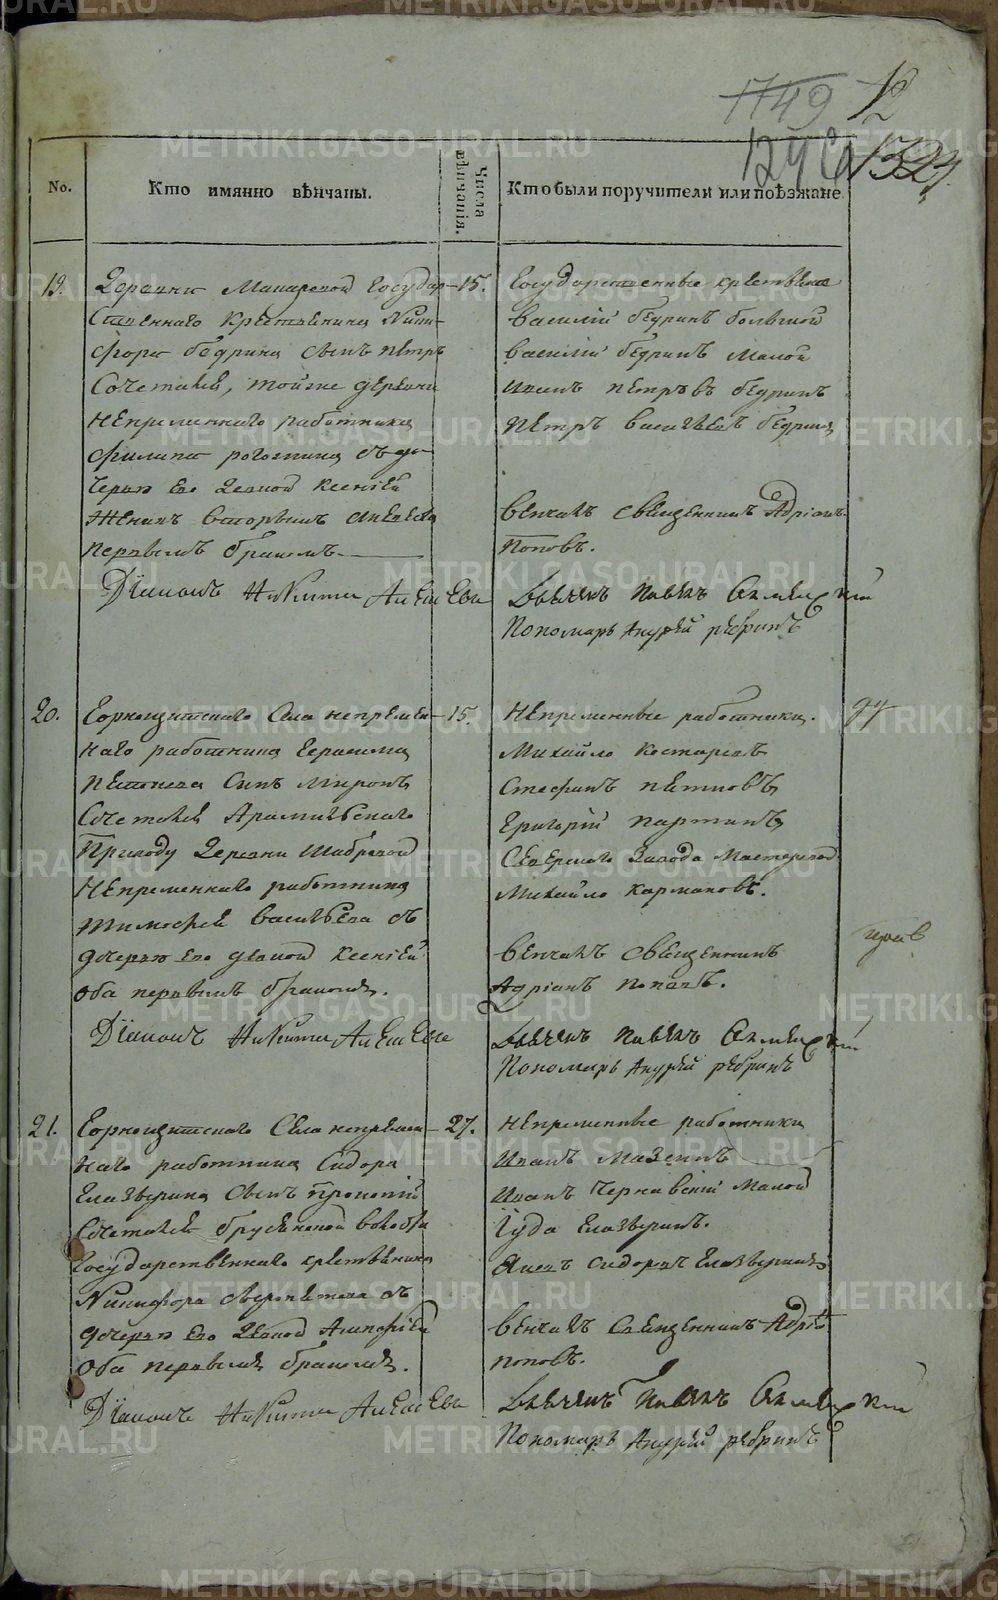 1749 12
1246 1327.
No.
Кто имянно вѣнчаны.
Числа вѣнчанія.
Кто были поручители или поѣзжане.
19.
Деревни Макаровой Государ-
ственнаго Крестьянина Ники-
фора бедрина сынъ петръ
Сочетался, тойже деревни
непременнаго работника
филипа рогозина съ до-
черью его девкой ксенiей
Женихъ вторымъ а невеста
первымъ бракомъ
Дiаконъ Никита Алексеевъ
15.
Государственные крестьяна
василiй бедринъ большой
василiй бедринъ малой
иванъ петровъ бедринъ
петръ васильевъ бедринъ
венчалъ священникъ Адрiанъ
Поповъ.
Дьячекъ Павелъ
Пономарь Андрей рябринъ
20.
Горнощитскаго Села непремен-
наго работника Герасима
Сынъ миронъ
Сочетался Арамильскаго
Приходу Деревни Шабровой
непременнаго работника
тимофея васильева съ
дочерью его девкой ксенiей
оба первымъ бракомъ.
Дiаконъ Никита Алексеевъ
15.
Непременные работники.
Михайло костаревъ
Стефанъ
Григорiй паргинъ
Северскаго Завода Мастеровой
Михайло кармановъ.
венчалъ священникъ
Адрiанъ поповъ.
Дьячекъ Павелъ
Пономарь Андрей рябринъ
21.
Горнощитскаго Села непремен-
наго работника Сидора
Глазырина сынъ прокопiй
Сочетался брусяной волости
Государственнаго крестьянина
Никифора съ
дочерью его девкой Агафiей
оба первымъ бракомъ.
Дiаконъ Никита Алексеевъ
27.
непременные работники
иванъ мазеинъ
иванъ чернавскiй малой
Iуда Глазыринъ.
сидоръ Глазыринъ
венчалъ Священникъ Адрiанъ
поповъ.
Дьячекъ Павелъ
Пономарь Андрей рябринъ
METRIKI.GASO-URAL.RU